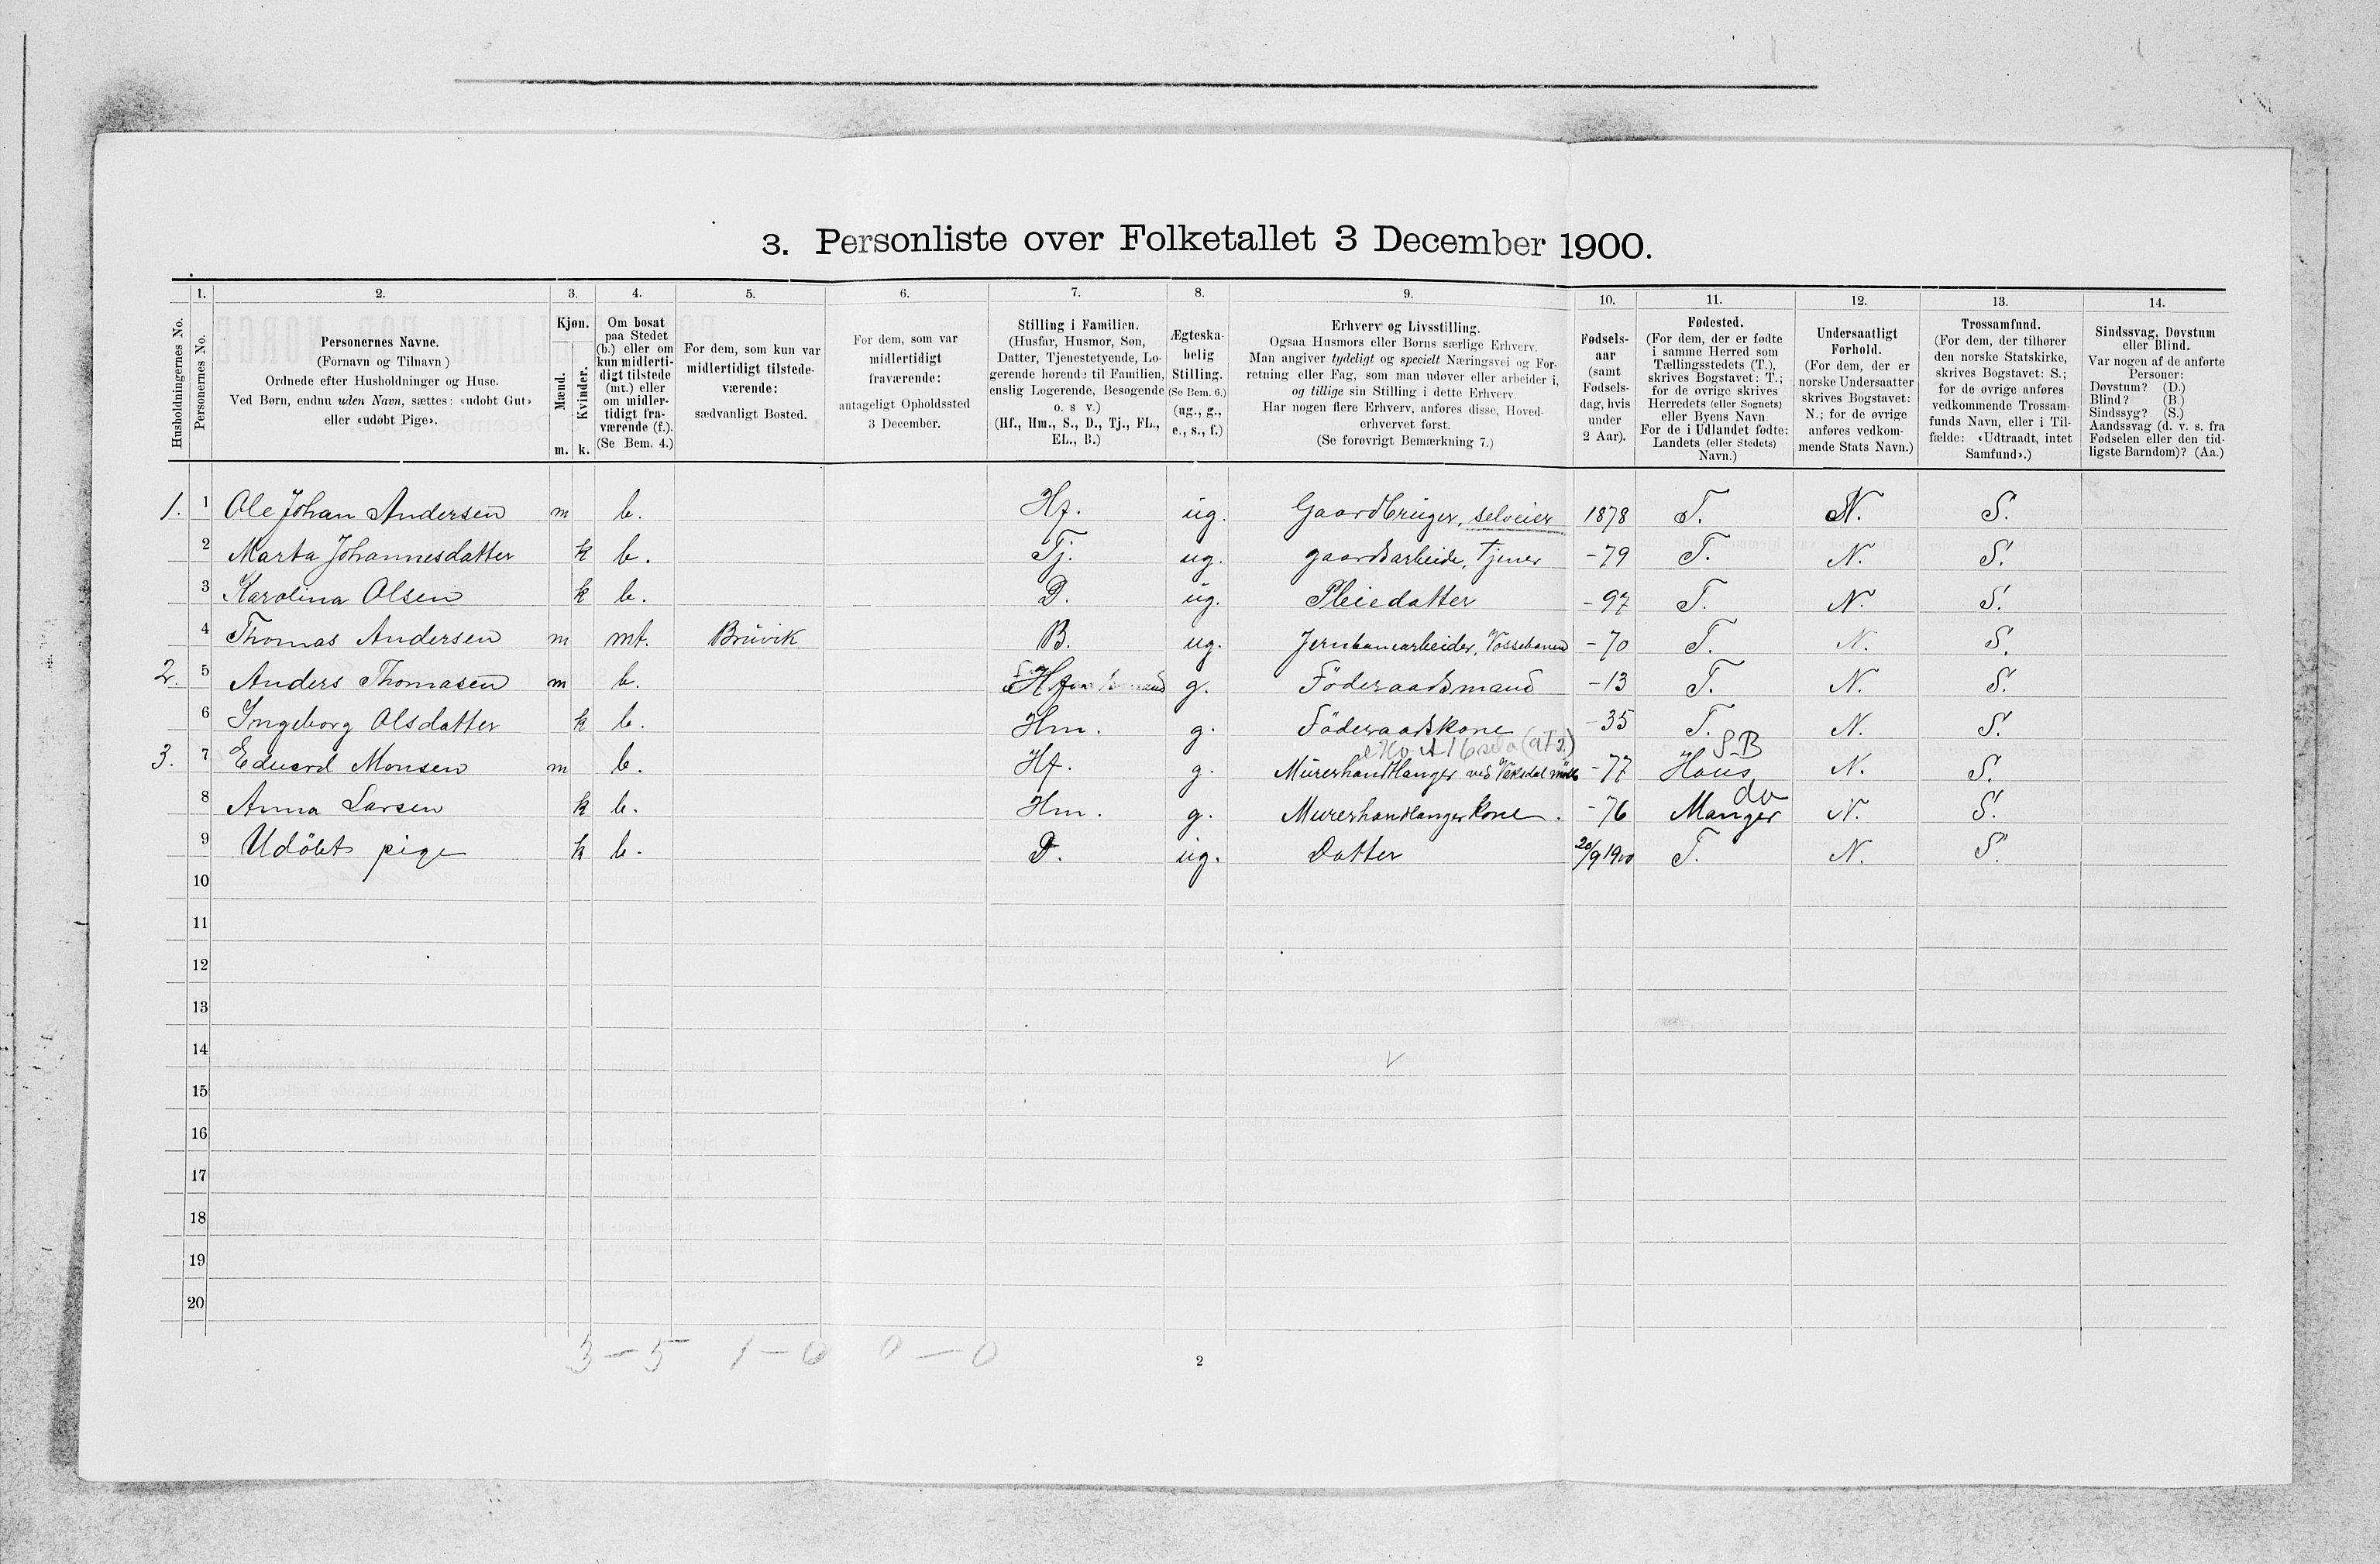 3. Personliste over Folketallet 3 December 1900.
1. 2. 3. 4. 5. 6. 7. 8. 9. 10. 11. 12. 13. 14.
Husholdningernes No.
Personernes No.
Personernes Navne.
(Fornavn og Tilnavn)
Ordnede efter Husholdninger og Huse.
Ved Børn, endnu uden Navn, sættes: «udøbt Gut»
eller «udøbt Pige».
Kjøn.
Mænd.
Kvinder.
m. k.
Om bosat
paa Stedet
(b.) eller om
kun midlerti-
digt tilstede
(mt.) eller
om midler-
tidigt fra-
værende (f.).
(Se Bem. 4.)
For dem, som kun var
midlertidigt tilstede-
værende:
sædvanligt Bosted.
For dem, som var
midlertidigt
fraværende:
antageligt Opholdssted
3 December.
Stilling i Familien.
(Husfar, Husmor, Søn,
Datter, Tjenestetyende, Lo-
gerende hørende til Familien,
enslig Logerende, Besøgende
o. s v.)
(Hf., Hm., S., D., Tj., FL.,
EL., B.)
Ægteska-
belig
Stilling.
(Se Bem. 6.)
(ug., g.,
e., s., f.)
Erhverv og Livsstilling.
Ogsaa Husmors eller Børns særlige Erhverv.
Man angiver tydeligt og specielt Næringsvei og For-
retning eller Fag, som man udøver eller arbeider i,
og tillige sin Stilling i dette Erhverv
Har nogen flere Erhverv, anføres disse, Hoved-
erhvervet først.
(Se forøvrigt Bemærkning 7.)
Fødsels-
aar
(samt
Fødsels-
dag, hvis
under
2 Aar).
Fødested.
(For dem, der er fødte
i samme Herred som
Tællingsstedets (T.),
skrives Bogstavet: T.;
for de øvrige skrives
Herredets (eller Sognets)
eller Byens Navn
For de i Udlandet fødte:
Landets (eller Stedets)
Navn.)
Undersaatligt
Forhold.
(For dem, der er
norske Undersaatter
skrives Bogstavet:
N.; for de øvrige
anføres vedkom-
mende Stats Navn.)
Trossamfund.
(For dem, der tilhører
den norske Statskirke,
skrives Bogstavet: S.;
for de øvrige anføres
vedkommende Trossam-
funds Navn, eller i Til-
fælde: «Udtraadt, intet
Samfund».)
Sindssvag, Døvstum
eller Blind.
Var nogen af de anførte
Personer:
Døvstum? (D.)
Blind? (B.)
Sindssyg? (S.)
Aandssvag (d. v. s. fra
Fødselen eller den tid-
ligste Barndom)? (Aa.)
1. 1 Ole Johan Andersen m b. Hf. ug. Gaardbruger, selveier 1878 T. N. S.
2 Marta Johannesdatter k b. Tj. ug. gaardsarbeide, Tjener -79 T. N. S.
3 Karolina Olsen k b. D. ug. Pleiedatter -97 T. N. S.
4 Thomas Andersen m mt. Bruvik B. ug. Jernbanearbeider, Vossebanen -70 T. N. S.
2. 5 Anders Thomasen m b. Hf. g. Föderaadsmand -13 T. N. S.
6 Ingeborg Olsdatter k b. Hm. g. Föderaadskone -35 T. N. S.
SB
3. 7 Eduard Monsen m b. Hf. g. Murerhandlanger ved Veksdal mölle -77 Haus N. S.
do
8 Anna Larsen k b. Hm. g. Murerhandlangerkone. -76 Manger N. S.
9 Udöbt pige k b. D. ug. Datter 20/9 1900 T. N. S.
10
11
12
13
14
15
16
17
18
19
20
3 - 5 1 - 0 0 - 0
2